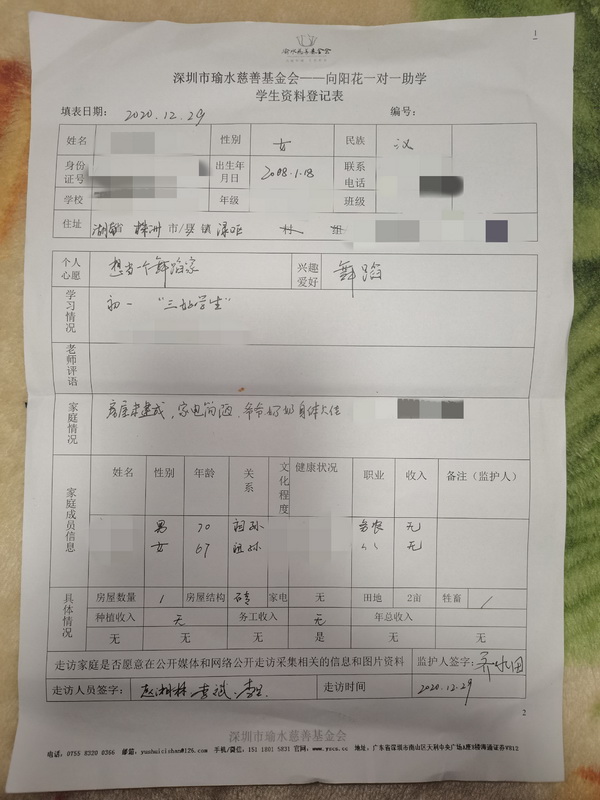 1
深圳市瑜水慈善基金会——向阳花一对一助学
学生资料登记表
填表日期: 2020.12.29 编号:
姓名 性别 女 民族 汉
身份证号 出生年月日 2008.1.18 联系电话
学校 年级 班级
住址 湖南省 株洲 市/县 镇
个人心愿 想当一个舞蹈家 兴趣爱好 舞蹈
学习情况 初一 “三好学生”
老师评语
家庭情况 房屋未建成, 家电简陋, 爷爷奶奶身体欠佳
家庭成员信息 姓名 性别 年龄 关系 文化程度 健康状况 职业 收入 备注(监护人)
男 70 祖孙 务农 无
女 67 祖孙 〃 无
具体情况 房屋数量 1 房屋结构 砖 家电 无 田地 2亩 牲畜 /
种植收入 无 务工收入 无 年总收入
无 无 无 是 无 无
走访家庭是否愿意在公开媒体和网络公开走访采集相关的信息和图片资料 监护人签字:
走访人员签字: 走访时间 2020.12.29
2
深圳市瑜水慈善基金会
电话: 0755 8320 0366 邮箱: yushuicishan@126.com 手机/微信: 151 1801 5831 官网: www.yscs.cc 地址: 广东省深圳市南山区天利中央广场A座